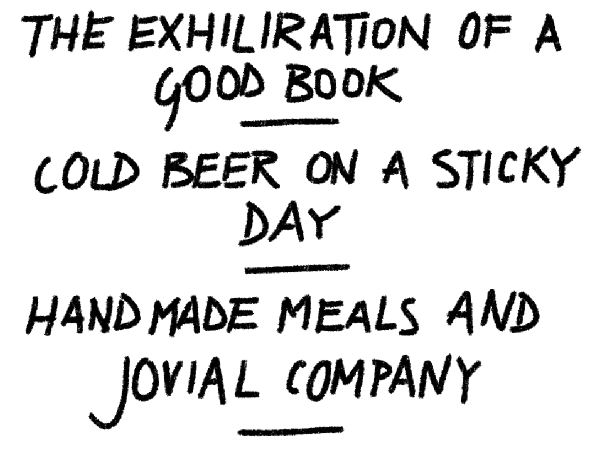 THE EXHILIRATION OF A
GOOD BOOK
COLD BEER ON A STICKY
DAY
HANDMADE MEALS AND
JOVIAL COMPANY